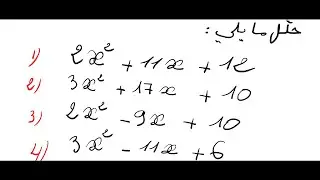 حلّل ما يلي :
1) 2x² + 11x + 12
2) 3x² + 17x + 10
3) 2x² - 9x + 10
4) 3x² - 11x + 6